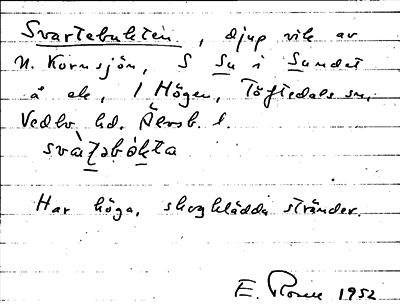 Svartebukten, djup vik av
N. Kornsjön, S Su i Sundet
å ek, 1 Högen, Töftedals sn,
Vedbo hd. Älvsb. l.
Har höga, skogklädda stränder.
1952